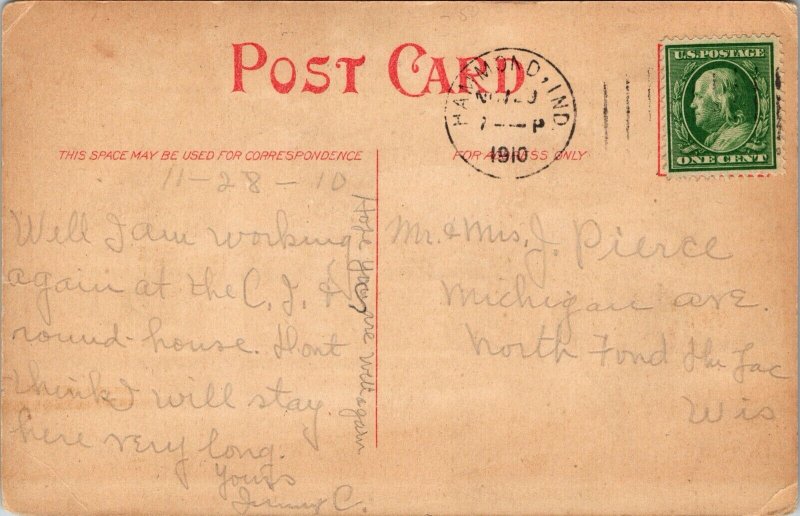 POST CARD
HAMMOND, IND.
7 — P
1910
U.S. POSTAGE
ONE CENT
THIS SPACE MAY BE USED FOR CORRESPONDENCE
FOR ADDRESS ONLY
11-28-10
Well I am working
again at the C. I. &
round-house. Dont
think I will stay
here very long.
Yours
Jimmy C.
Hope you are well again
Mr. & Mrs. J. Pierce
Michigan ave.
North Fond du Lac
Wis